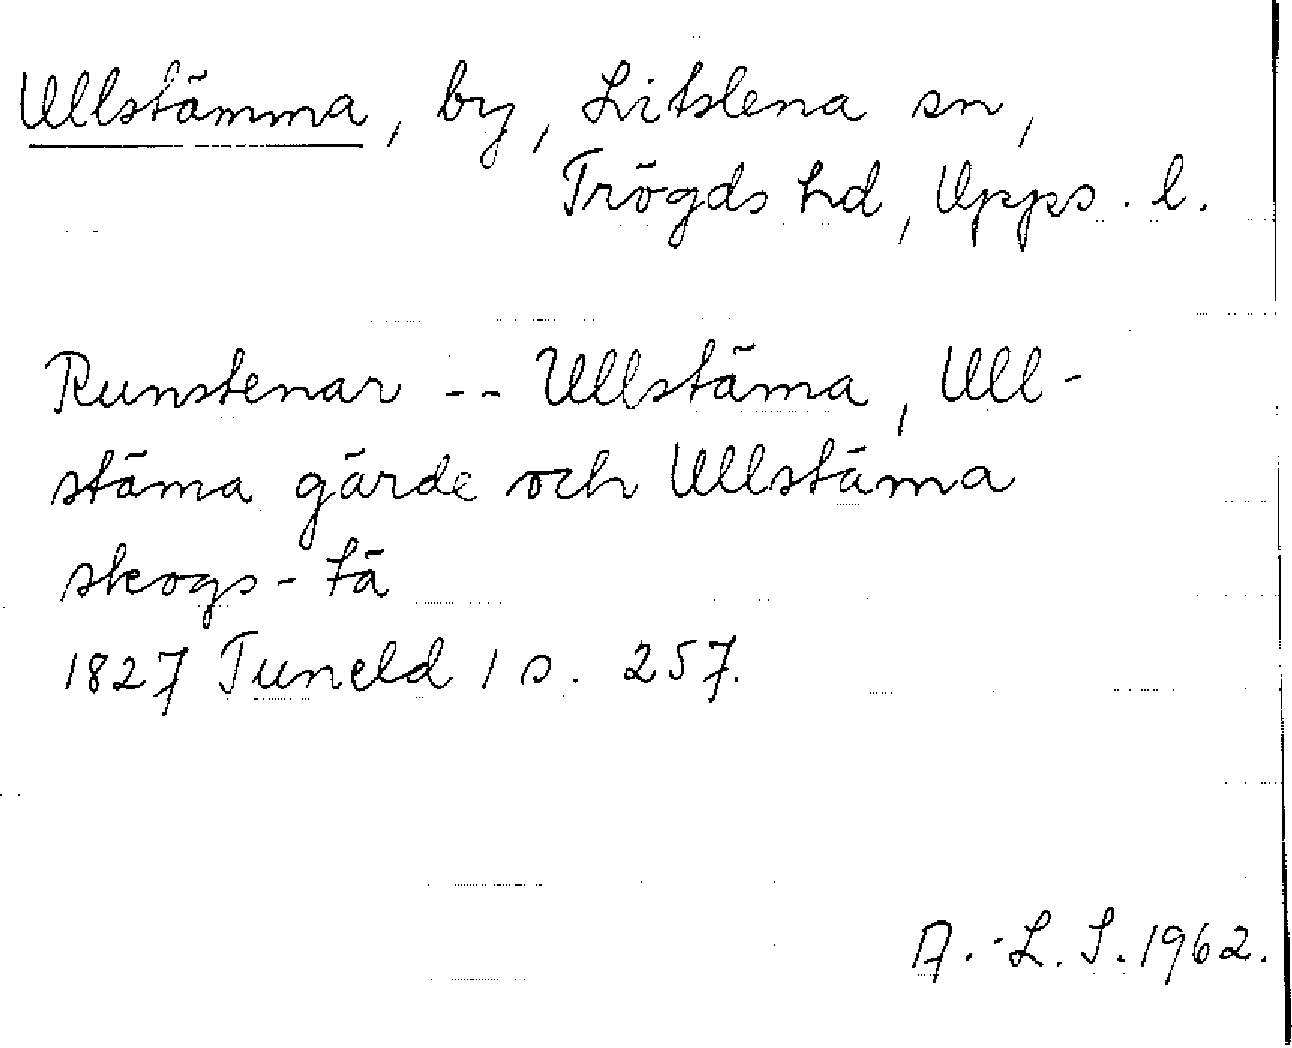 Ullstämma, by, Litslena sn,
Trögds hd, Upps. l.
Runstenar -- Ullstäma, Ull-
stäma gärde och Ullstäma
skogs-tä
1827 Tuneld 1 s. 257.
A.-L. S. 1962.